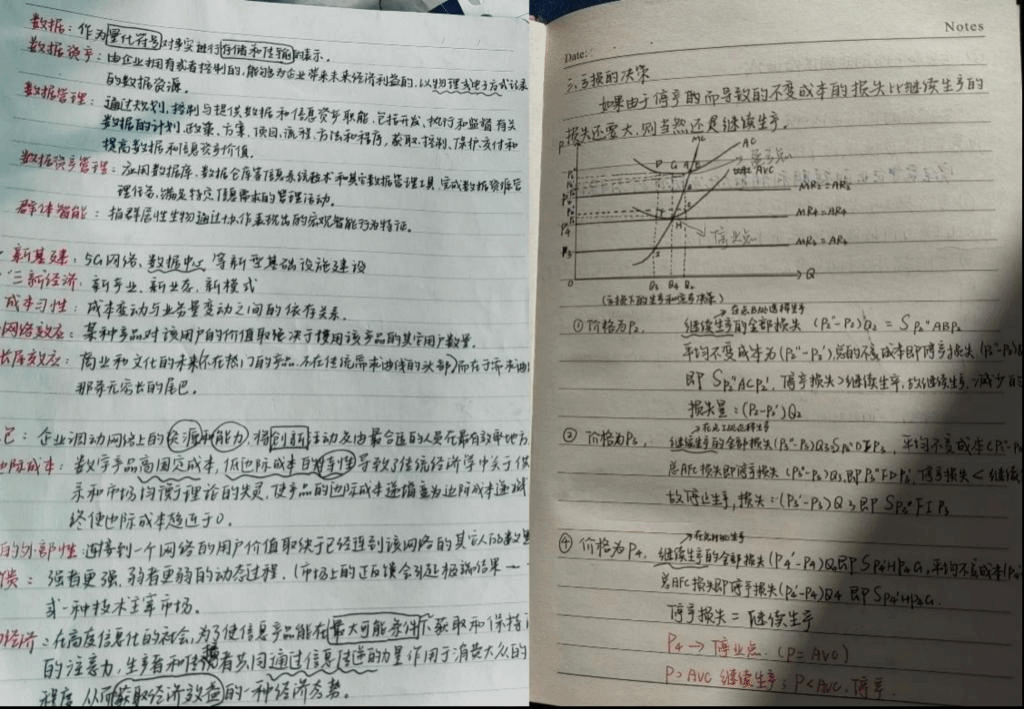 数据：作为量化符号对事实进行存储和传输的表示。
数据资产：由企业拥有或者控制的，能够为企业带来未来经济利益的，以物理或电子方式记录
的数据资源。
数据管理：通过规划、控制与提供数据和信息资产职能，包括开发、执行和监督有关
数据的计划、政策、方案、项目、流程、方法和程序，获取、控制、保护、交付和
提高数据和信息资产价值。
数据资产管理：应用数据库、数据仓库等信息系统技术和其它数据管理工具，完成数据资源管
理任务，满足特定信息需求的管理活动。
群体智能：指群居性生物通过协作表现出的宏观智能行为特征。
新基建：5G网络、数据中心等新型基础设施建设
"三新"经济：新产业、新业态、新模式
成本习性：成本变动与业务量变动之间的依存关系。
网络效应：某种产品对该用户的价值取决于使用该产品的其它用户数量。
长尾效应：商业和文化的未来不在热门的产品，不在传统需求曲线的头部，而在于需求曲
那条无穷长的尾巴。
包：企业调动网络上的资源和能力，将创新活动交由最合适的人员在最有效率地方
边际成本：数字产品高固定成本，低边际成本的特性导致了传统经济学中关于供
求和市场均衡理论的失灵，使产品的边际成本递增变为边际成本递减
终使边际成本趋近于0。
的外部性：连接到一个网络的用户价值取决于已经连到该网络的其它人的数量
馈：强者更强，弱者更弱的动态过程。(市场上的正反馈会引起极端结果
或一种技术主宰市场。
经济：在高度信息化的社会，为了使信息产品能在最大可能条件下获取和保持
的注意力，生产者和传播者共同通过信息传递的力量作用于消费大众的
程度，从而获取经济效益的一种经济态势。
Notes
Date:
三、亏损的决策
如果由于停产的而导致的不变成本的损失比继续生产的
损失还要大，则当然还是继续生产。
P MC AC
AVC
停业点
MR₂=AR₂
MR₄=AR₄
MR₃=AR₃
0 Q₃ Q₄ Q₂ Q
(亏损下的生产和停产决策)
① 价格为P₂，继续生产的全部损失 (P₂"-P₂)Q₂ = S P₂"ABP₂
平均不变成本为(P₂"-P₂')，总的不变成本即停产损失 (P₂"-P₂')
即 S P₂"ACP₂'，停产损失>继续生产，故继续生产，减少的
损失量：(P₂-P₂')Q₂
② 价格为P₃，
总AFC损失即停产损失 (P₃"-P₃')Q₃，即P₃"FDP₃'，停产损失<继续
故停止生产，损失：(P₃'-P₃)Q₃ 即 SP₃'FIP₃
④ 价格为P₄，继续生产的全部损失(P₄"-P₄)Q₄ 即 SP₄"HP₄G，平均不变成本
总AFC损失即停产损失(P₄"-P₄)Q4 即 SP₄"HP₄G.
停产损失 = 继续生产
P₄ → 停业点.(P=AVC)
P>AVC 继续生产；P<AVC，停产.